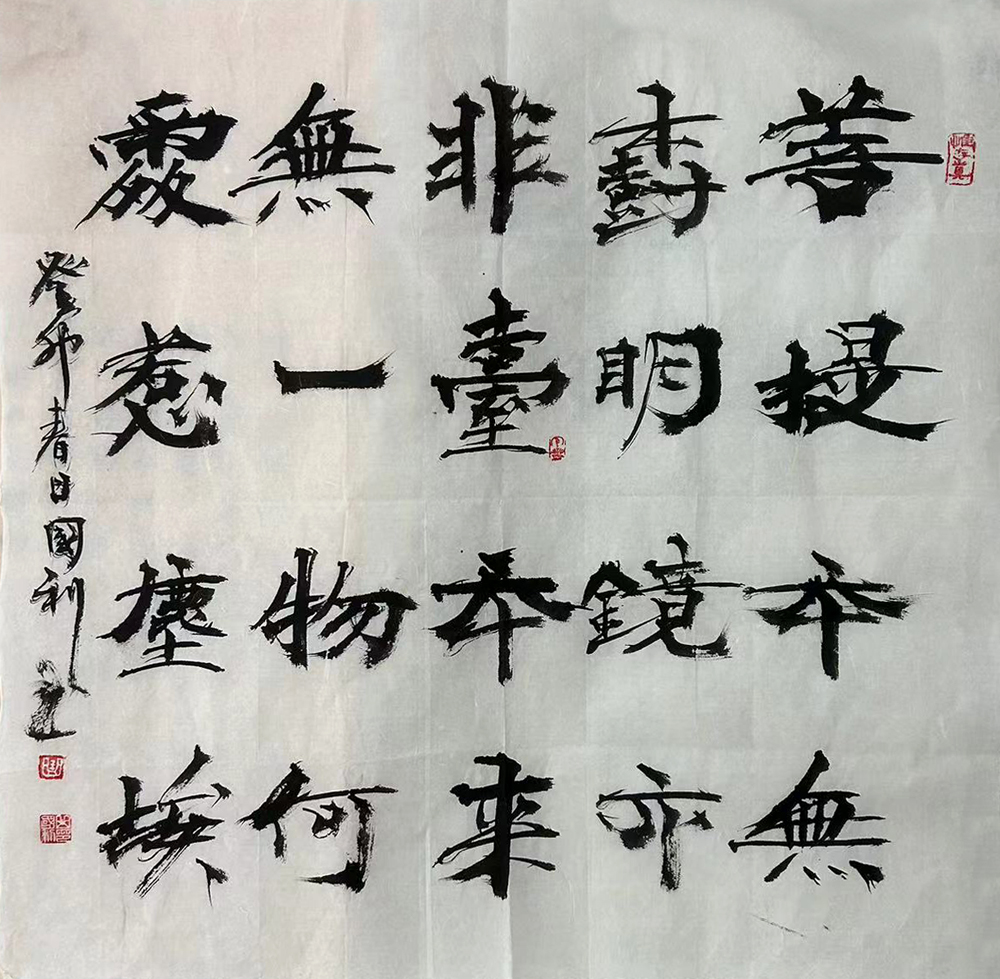 菩提本無
樹明鏡亦
非臺本來
無一物何
處惹塵埃
癸卯春日國利